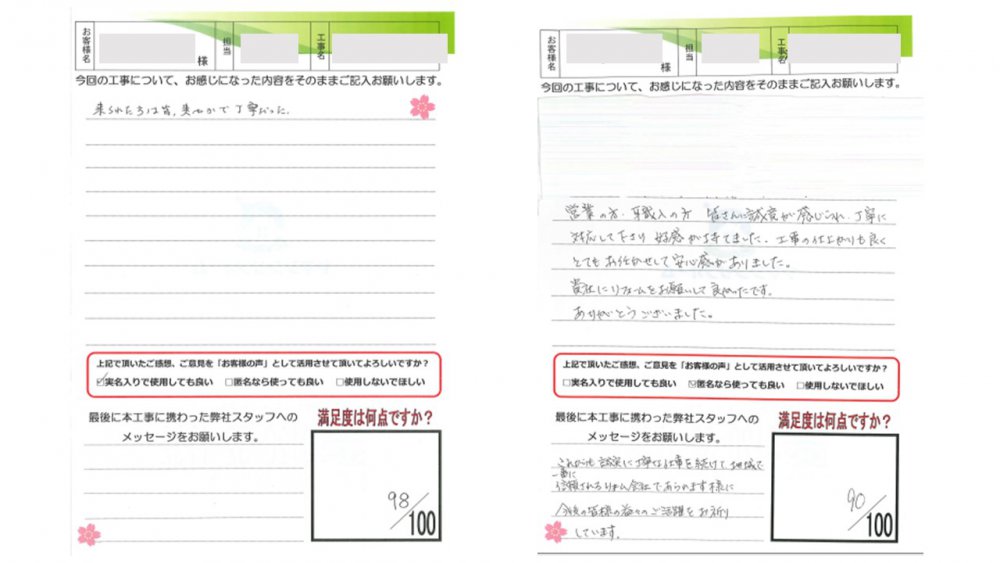 お客様名
様
担当
工事名
今回の工事について、お感じになった内容をそのままご記入お願いします。
来られたちは皆、爽やかで丁寧だった。
上記で頂いたご感想、ご意見を「お客様の声」として活用させて頂いてよろしいですか?
☑実名入りで使用しても良い □匿名なら使っても良い □使用しないでほしい
最後に本工事に携わった弊社スタッフへの
メッセージをお願いします。
満足度は何点ですか?
98/100
お客様名
様
担当
工事名
今回の工事について、お感じになった内容をそのままご記入お願いします。
営業の方・職人の方 皆さんに誠意が感じられ、丁寧に
対応して下さり 好感が持てました。工事の仕上がりも良く
とてもお任せして安心感がありました。
貴社にリフォームをお願いして良かったです。
ありがとうございました。
上記で頂いたご感想、ご意見を「お客様の声」として活用させて頂いてよろしいですか?
□実名入りで使用しても良い ☑匿名なら使っても良い □使用しないでほしい
最後に本工事に携わった弊社スタッフへの
メッセージをお願いします。
これからも誠実に丁寧な仕事を続けて地域で
一番に
信頼されるリフォーム会社であられます様に
今後の皆様の益々のご活躍をお祈り
しています。
満足度は何点ですか?
90/100